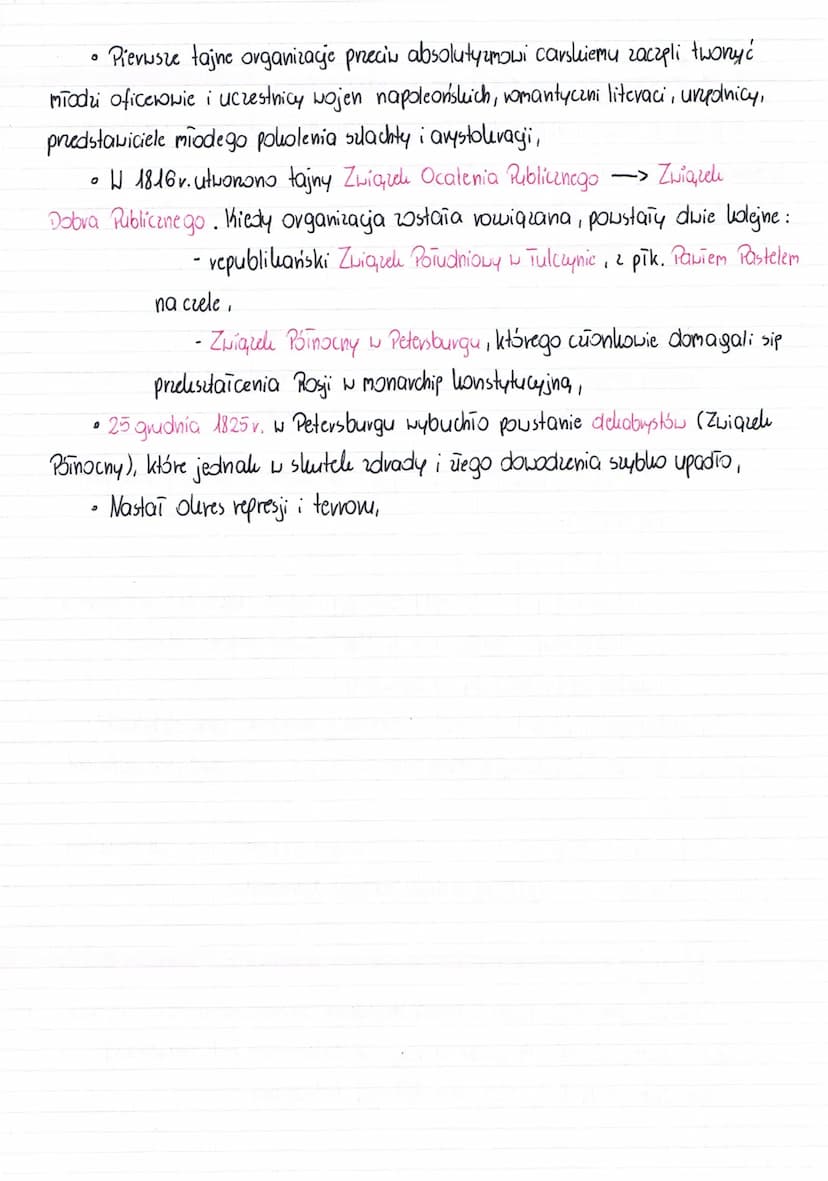 • Pierwsze tajne organizacje przeciw absolutyzmowi carskiemu zaczęli tworzyć
młodzi oficerowie i uczestnicy wojen napoleońskich, romantyczni literaci, urzędnicy,
przedstawiciele młodego pokolenia szlachty i arystokracji,
• W 1816 r. utworzono tajny Związek Ocalenia Publicznego —> Związek
Dobra Publicznego. Kiedy organizacja została rozwiązana, powstały dwie kolejne:
- republikański Związek Południowy w Tulczynie, z płk. Pawłem Pastelem
na czele,
- Związek Północny w Petersburgu, którego członkowie domagali się
przekształcenia Rosji w monarchię konstytucyjną,
• 25 grudnia 1825 r. w Petersburgu wybuchło powstanie dekabrystów (Związek
Północny), które jednak w skutek zdrady i złego dowodzenia szybko upadło,
• Nastał okres represji i terroru,